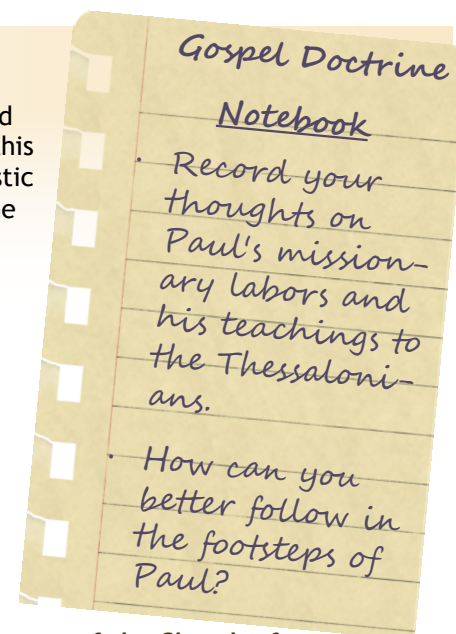 Gospel Doctrine
Notebook
• Record your
thoughts on
Paul's mission-
ary labors and
his teachings to
the Thessaloni-
ans.
• How can you
better follow in
the footsteps of
Paul?
his
stic